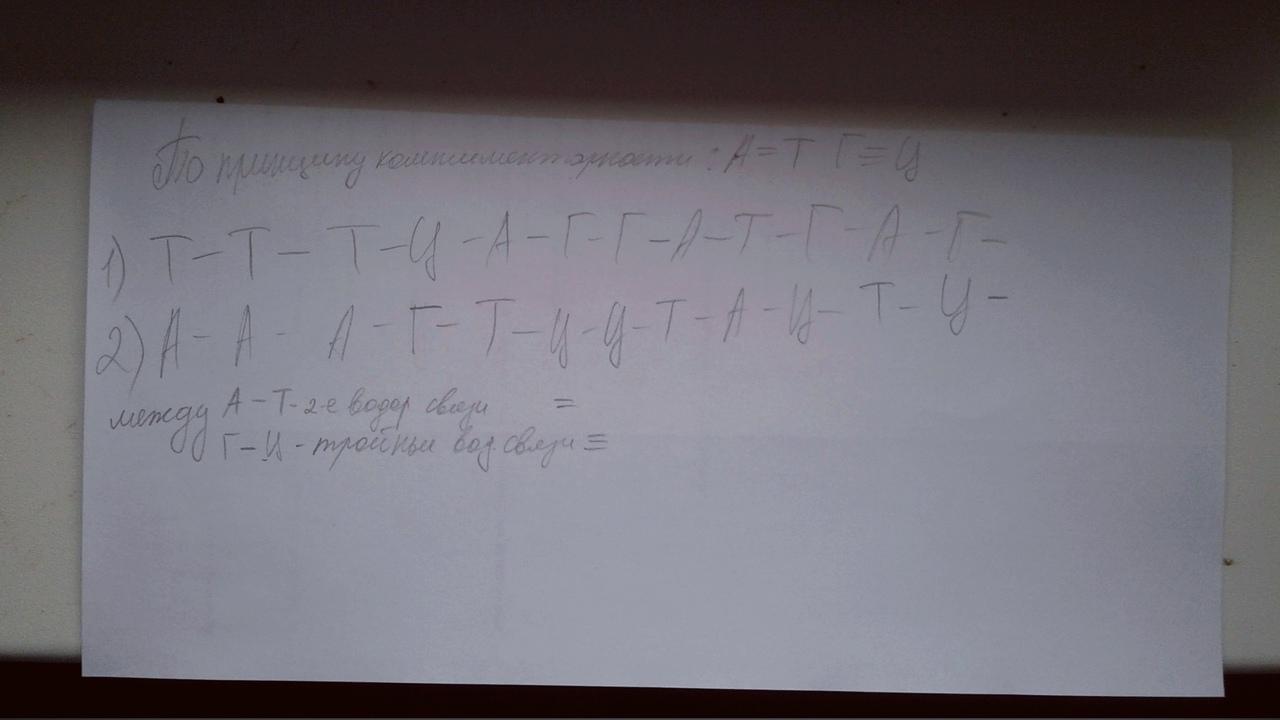 По принципу комплементарности: А=Т Г≡Ц
1) Т-Т-Т-Ц-А-Г-Г-А-Т-Г-А-Г-
2) А-А-А-Г-Т-Ц-Ц-Т-А-Ц-Т-Ц-
между А-Т-2-е водор связи =
Г-Ц-тройные вод. связи ≡